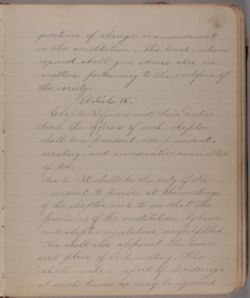 questions of change or amendment
in the constitution. This board, when
required, shall give advice also in
matters pertaining to the welfare of
the society.
Article IX.
Chapter Officers and their duties.
Sec 1. The officers of each chapter
shall be a president, vice president,
secretary, and an executive committee
of
Sec 2. It shall be the duty of the
president, to preside at the meetings
of the chapter and to see that the
provisions of the constitution, by laws
and chapter regulations are fulfilled.
He shall also appoint the hour
and place of each meeting. He
shall make a report of
at such times as may be required